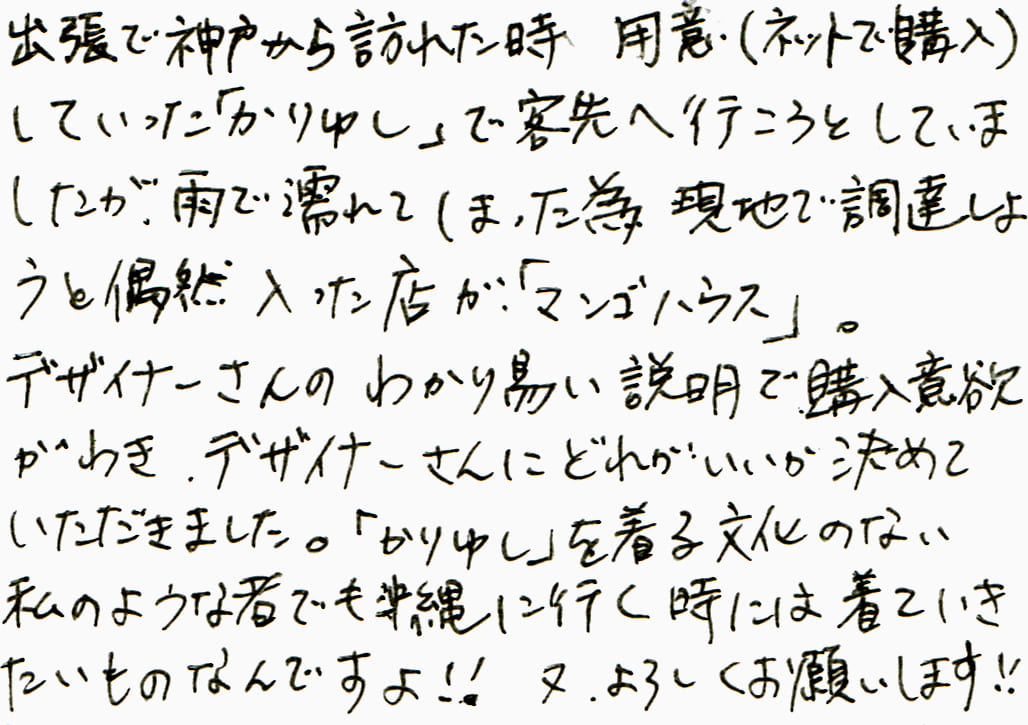 出張で神戸から訪れた時 用意(ネットで購入)
していった「かりゆし」で客先へ行こうとしていま
したが、雨で濡れてしまった為 現地で調達しよ
うと偶然入った店が「マンゴハウス」。
デザイナーさんのわかり易い説明で購入意欲
がわき、デザイナーさんにどれがいいか決めて
いただきました。「かりゆし」を着る文化のない
私のような者でも沖縄に行く時には着ていき
たいものなんですよ!! 又、よろしくお願いします!!